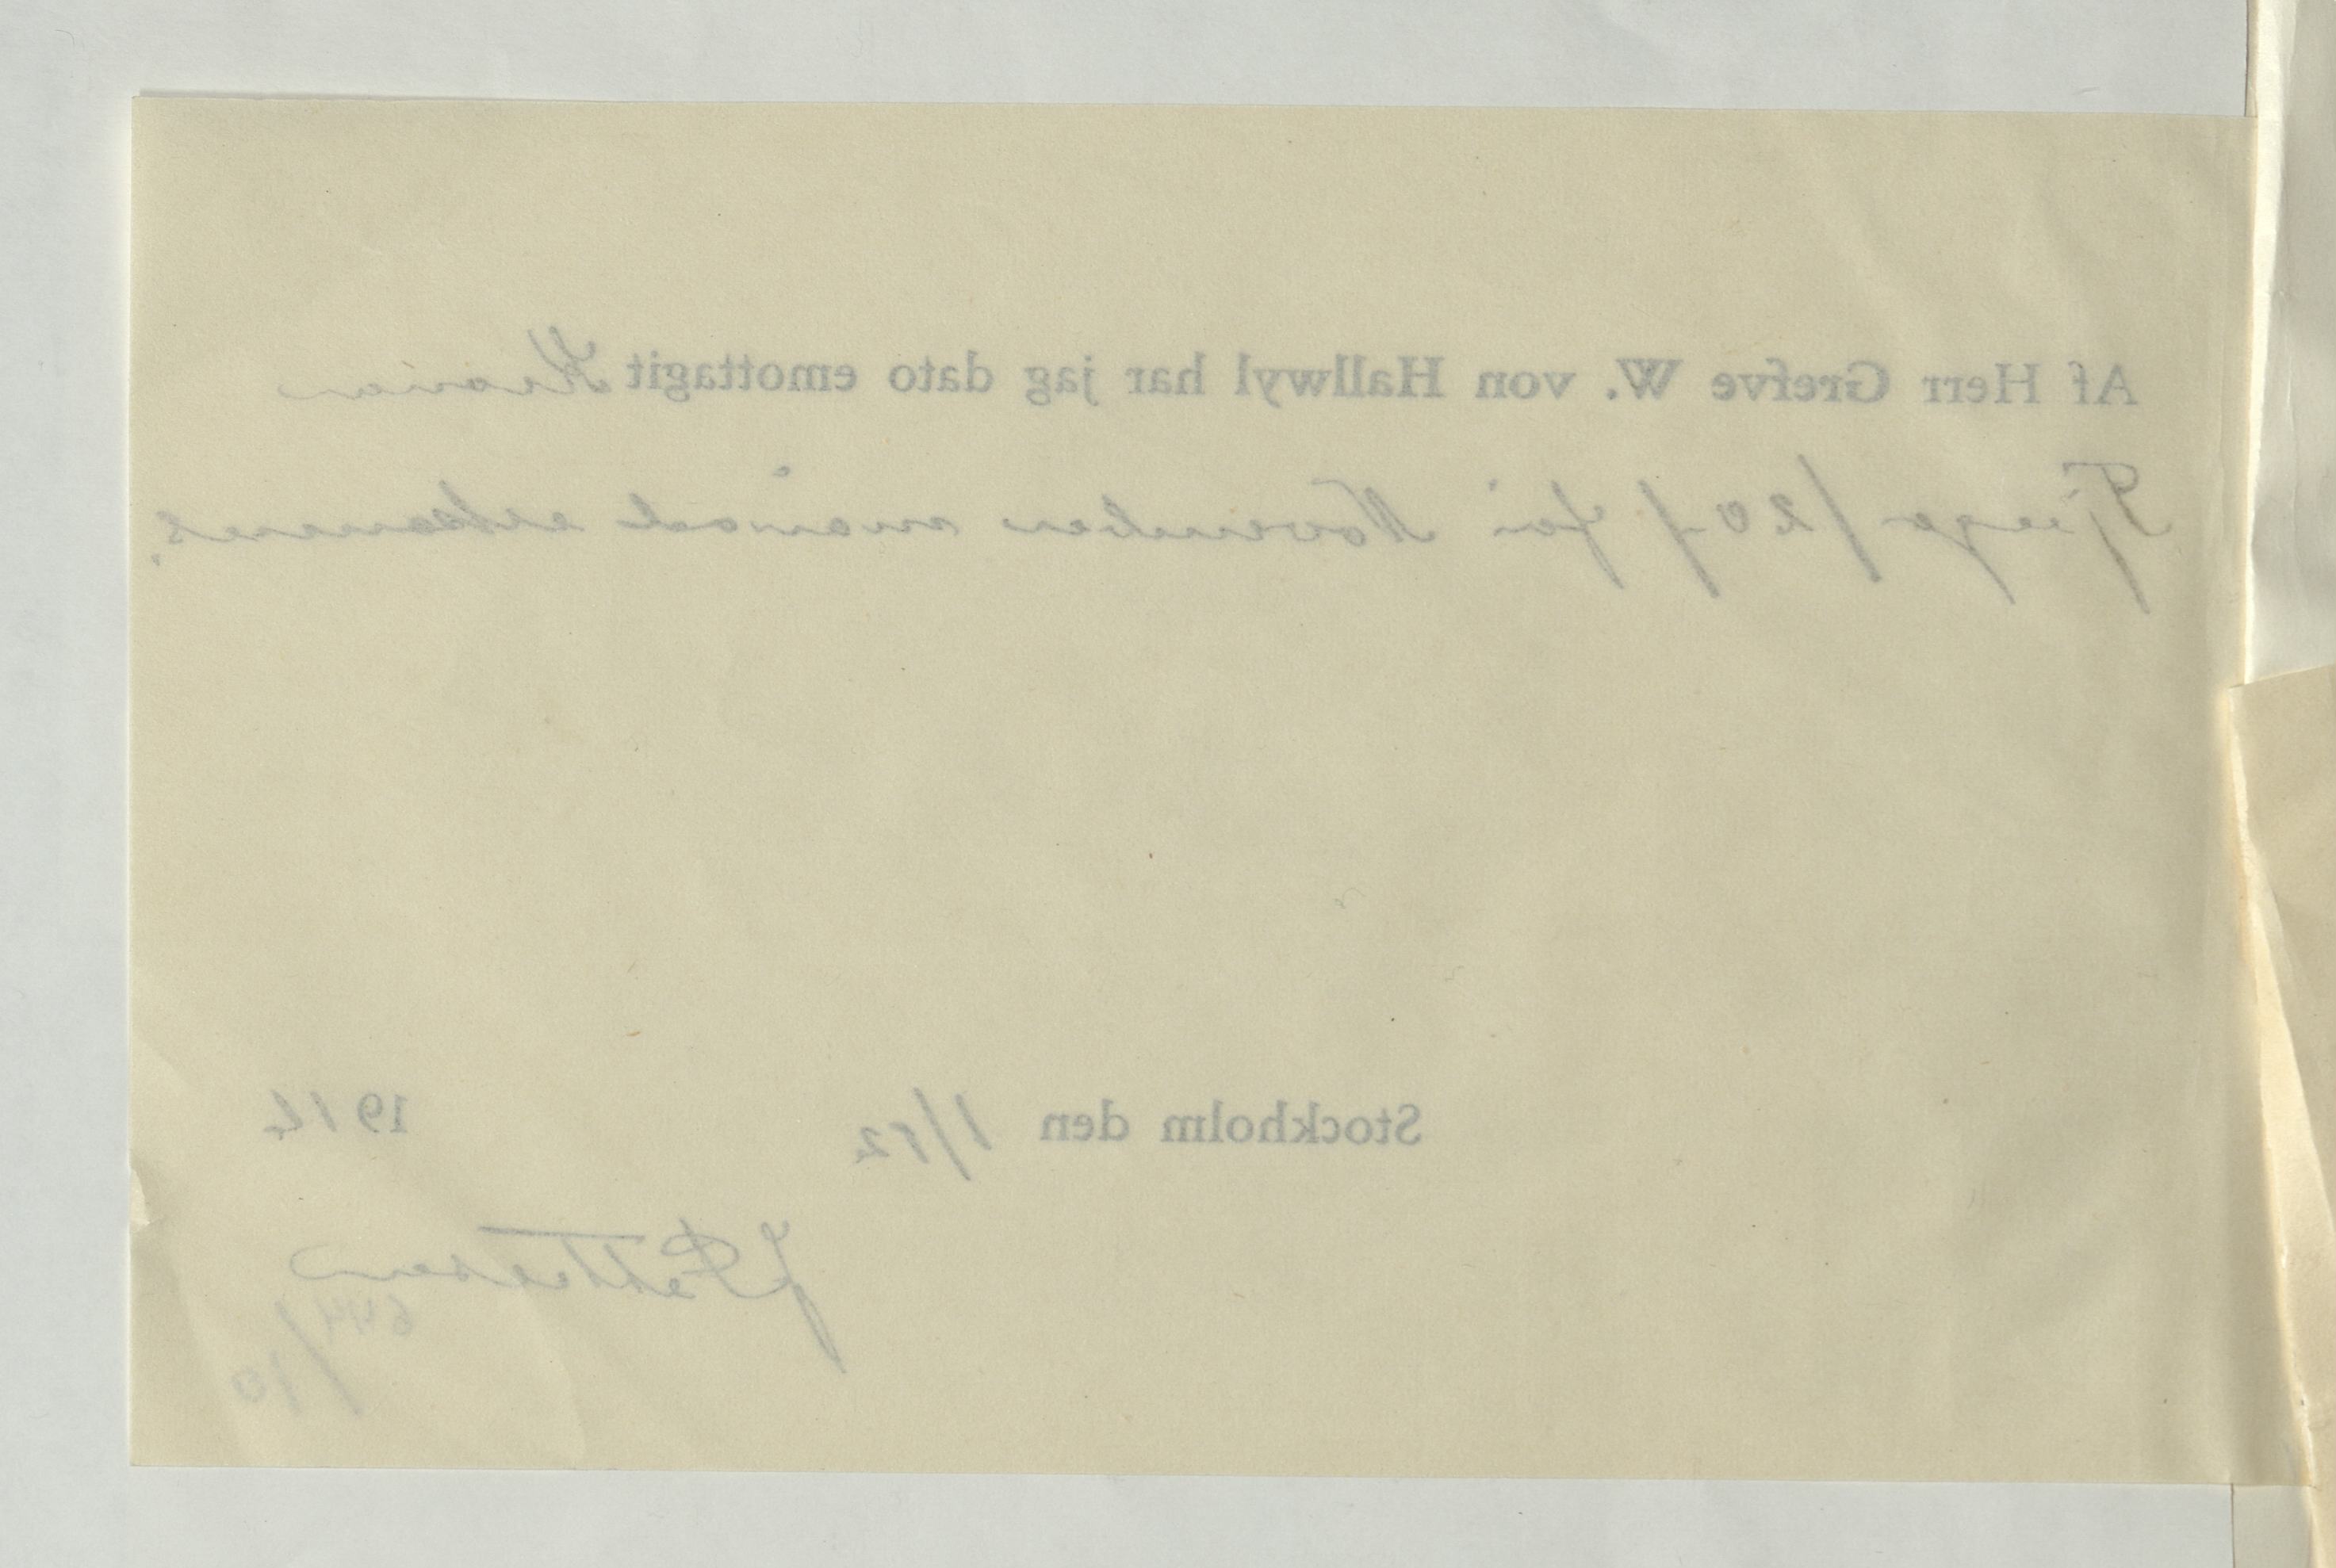 Af Herr Grefve W. von Hallwyl har jag dato emottagit Kronor
Tjugo /20/ för November månad
Stockholm den 1/12 1914
J Pettersson
644
/10